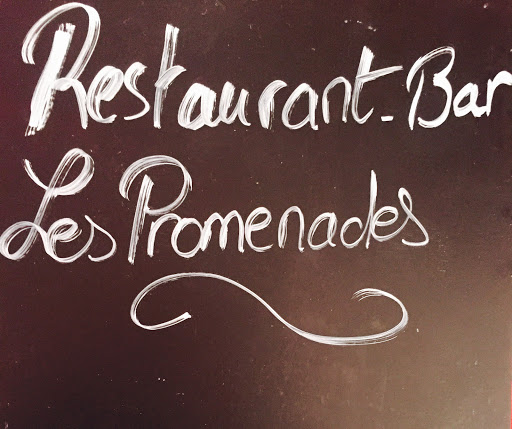 Restaurant-Bar
Les Promenades